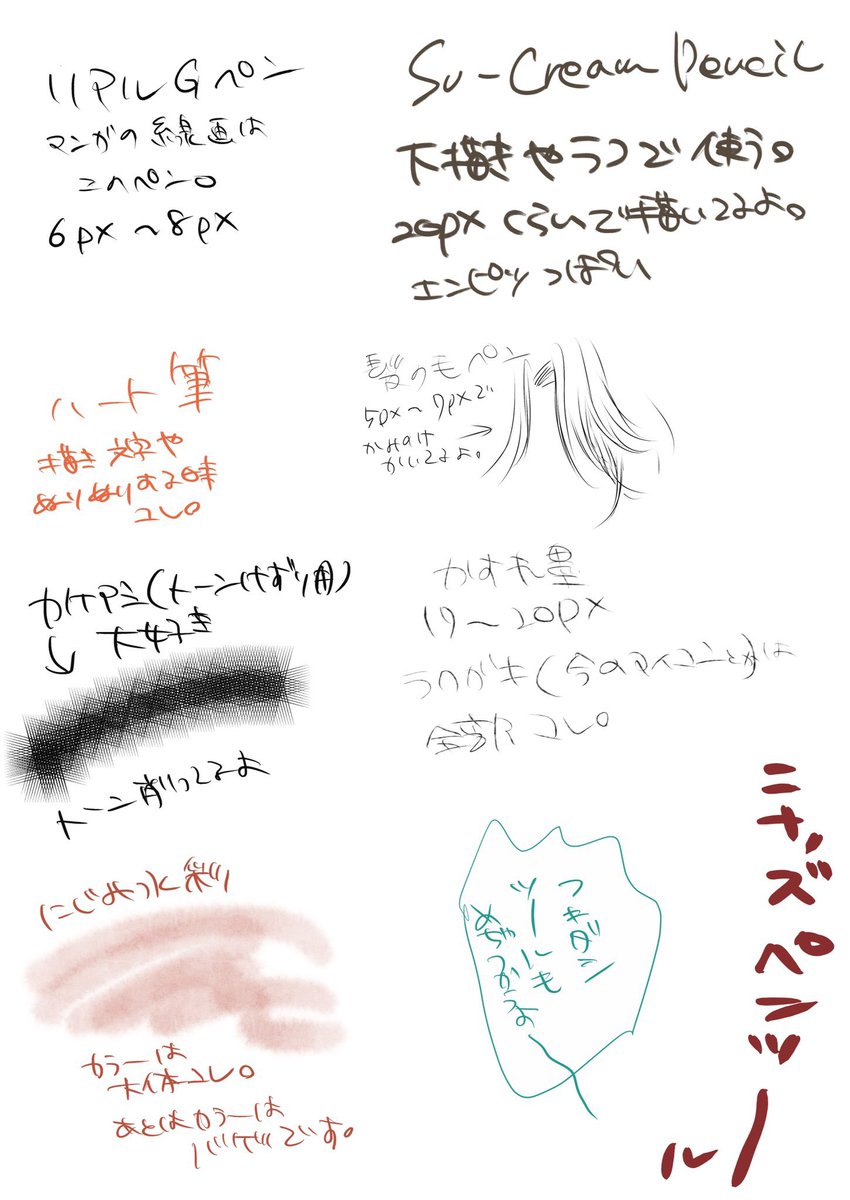 リアルGペン
マンガの線画は
このペン。
6px〜8px
Su-Cream Pencil
下描きやラフで使う。
20pxくらいで描いてるよ。
エンピツっぽい
ハート筆
描き文字や
ぬりぬりする時
コレ。
髪の毛ペン
5px〜7pxで
かみのけ
かいてるよ。
カケアミ(トーンけずり用)
大好き
トーン削ってるよ
かすれ墨
17〜20px
らくがき(今のアイコンとか)は
全部コレ。
にじみ水彩
カラーは
大体コレ。
あとはカラーは
バケツです。
フキダシ
ツールも
めちゃつかうよ
ニナ'ズペンツール